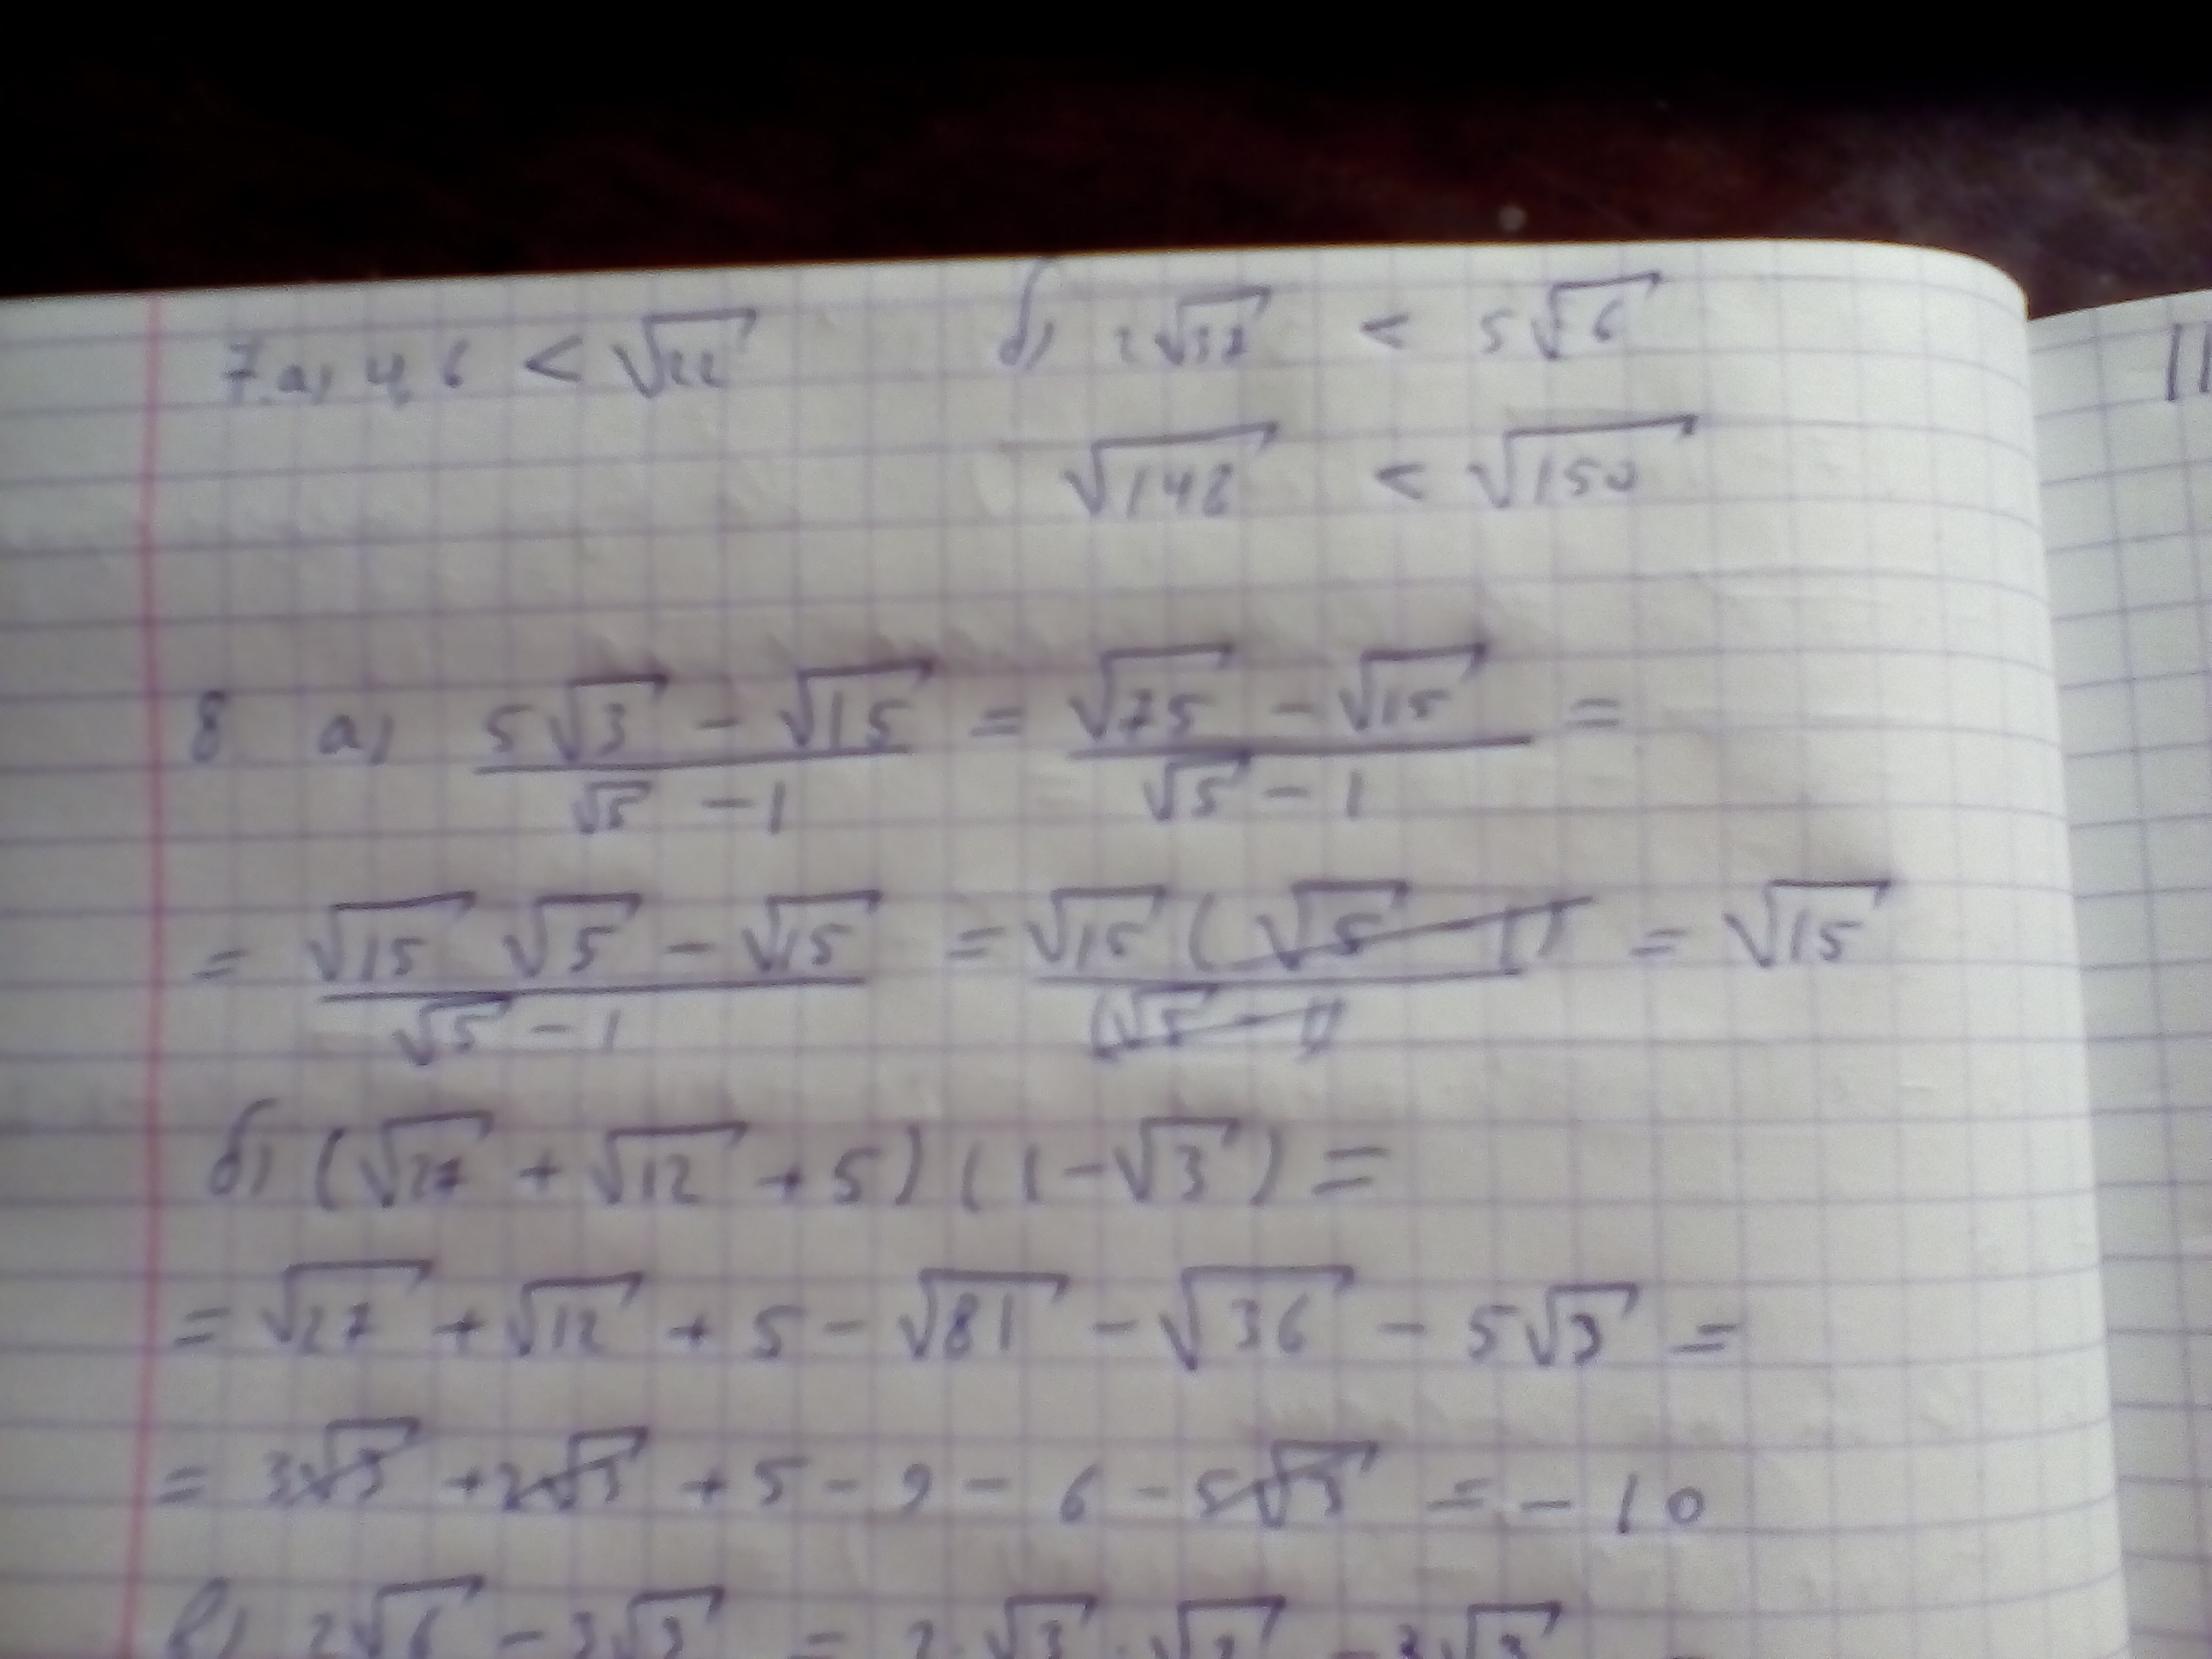 7.а) 4,6 < √22 б) 2√37 < 5√6
√148 < √150
8 а) (5√3 - √15)/(√5 - 1) = (√75 - √15)/(√5 - 1) =
= (√15 √5 - √15)/(√5 - 1) = √15(√5 - 1)/(√5 - 1) = √15
б) (√27 + √12 + 5)(1 - √3) =
= √27 + √12 + 5 - √81 - √36 - 5√3 =
= 3√3 + 2√3 + 5 - 9 - 6 - 5√3 = -10
в) 2√6 - 3√3 = 2·√3·√2 - 3√3